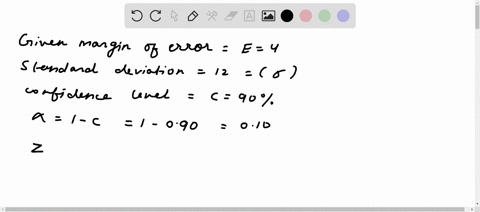 Given margin of error = E = 4
Standard deviation = 12 = (σ)
confidence level = C = 90%
α = 1 - C = 1 - 0.90 = 0.10
Z